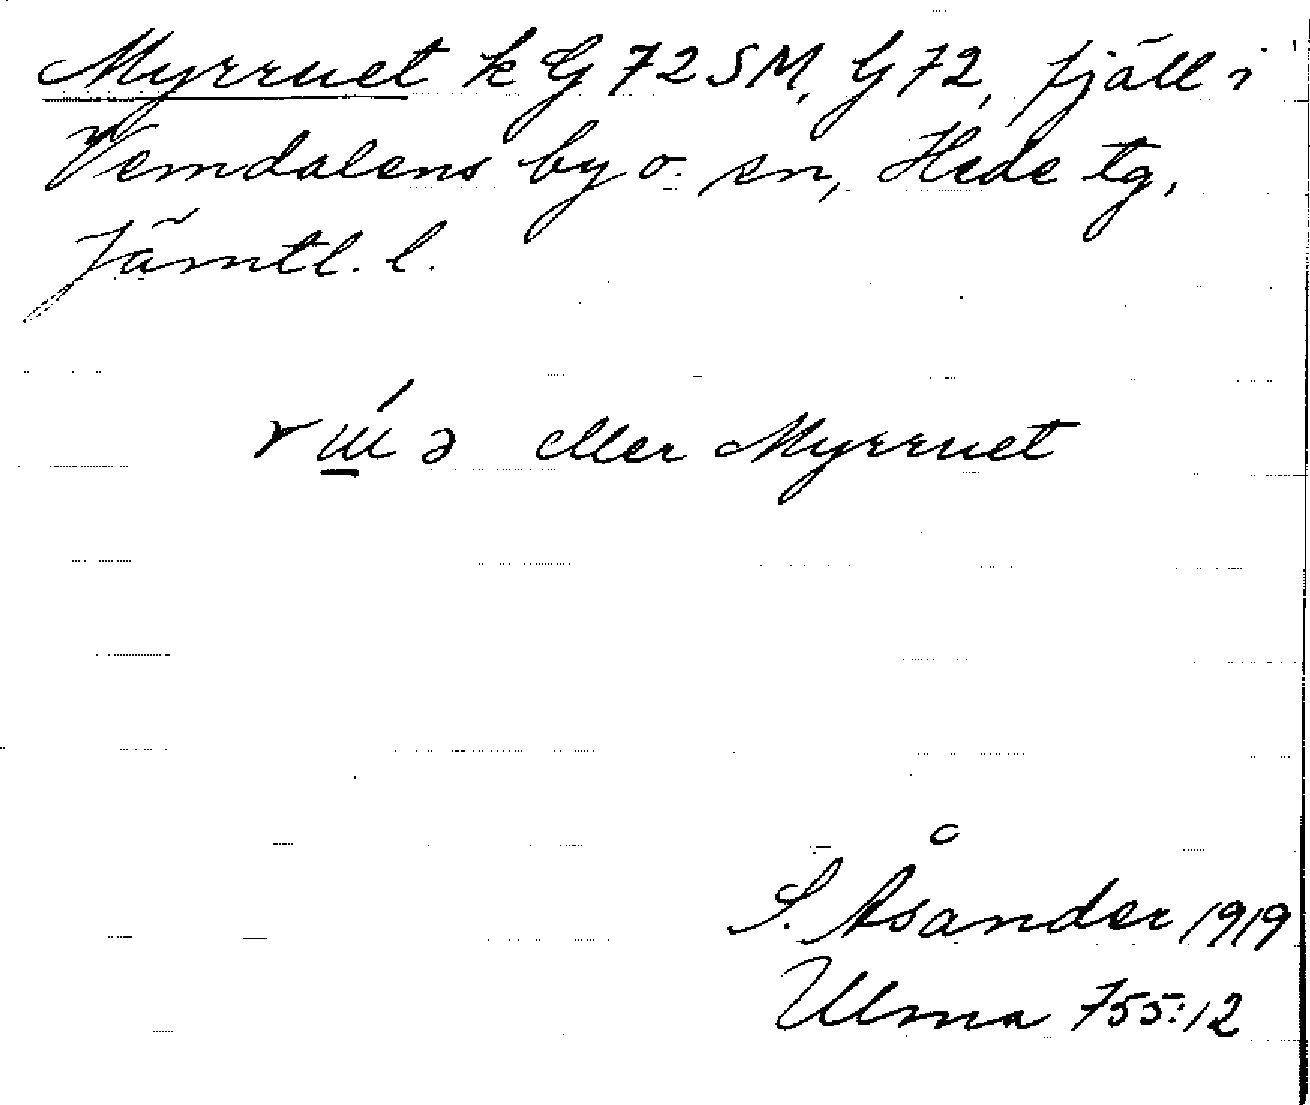 Myrruet k G 72 SM, G 72, fjäll i
Vemdalens by o. sn, Hede tg,
Jämtl. l.
eller Myrruet
S. Åsander 1919
Ulma 755:12